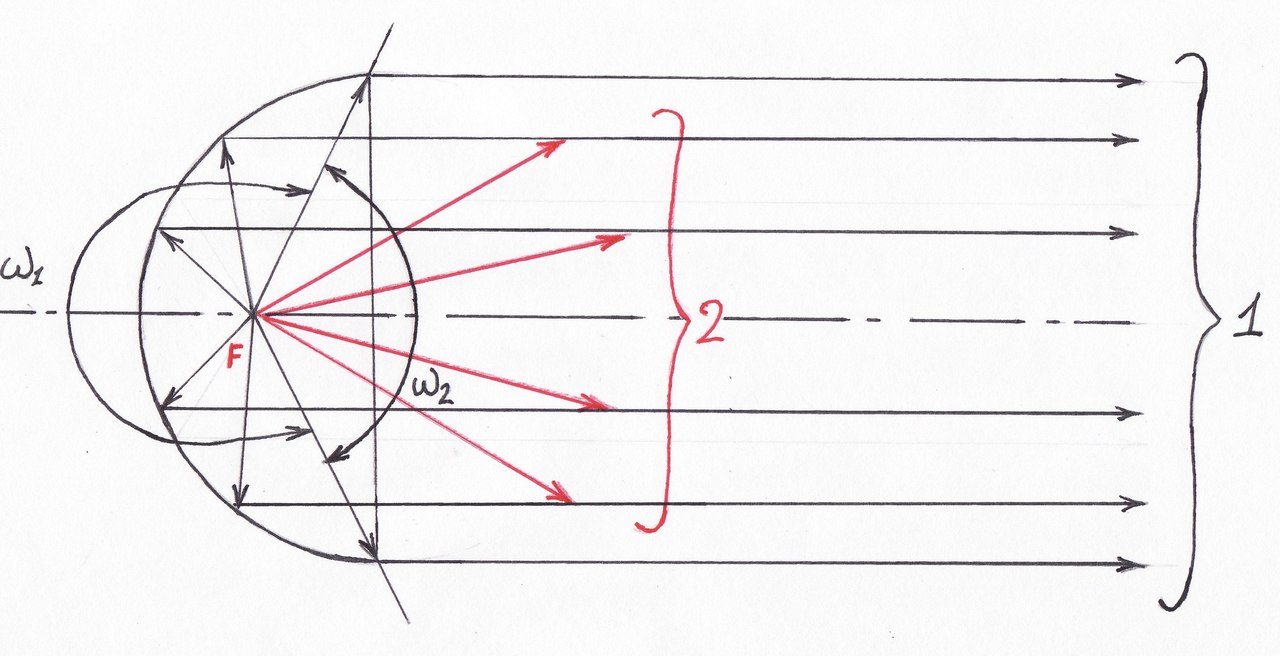 ω1
F
ω2
2
1